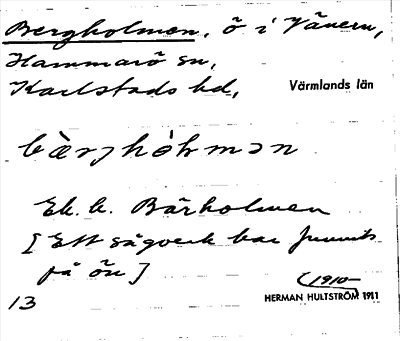 Bergholmen, ö i Vänern,
Hammarö sn,
Karlstads hd,
Värmlands län
bæ̀rjhòlmən
Ek. k. Bärholmen
[Ett sågverk har funnits
på ön]
(1910)
13
HERMAN HULTSTRÖM 1911